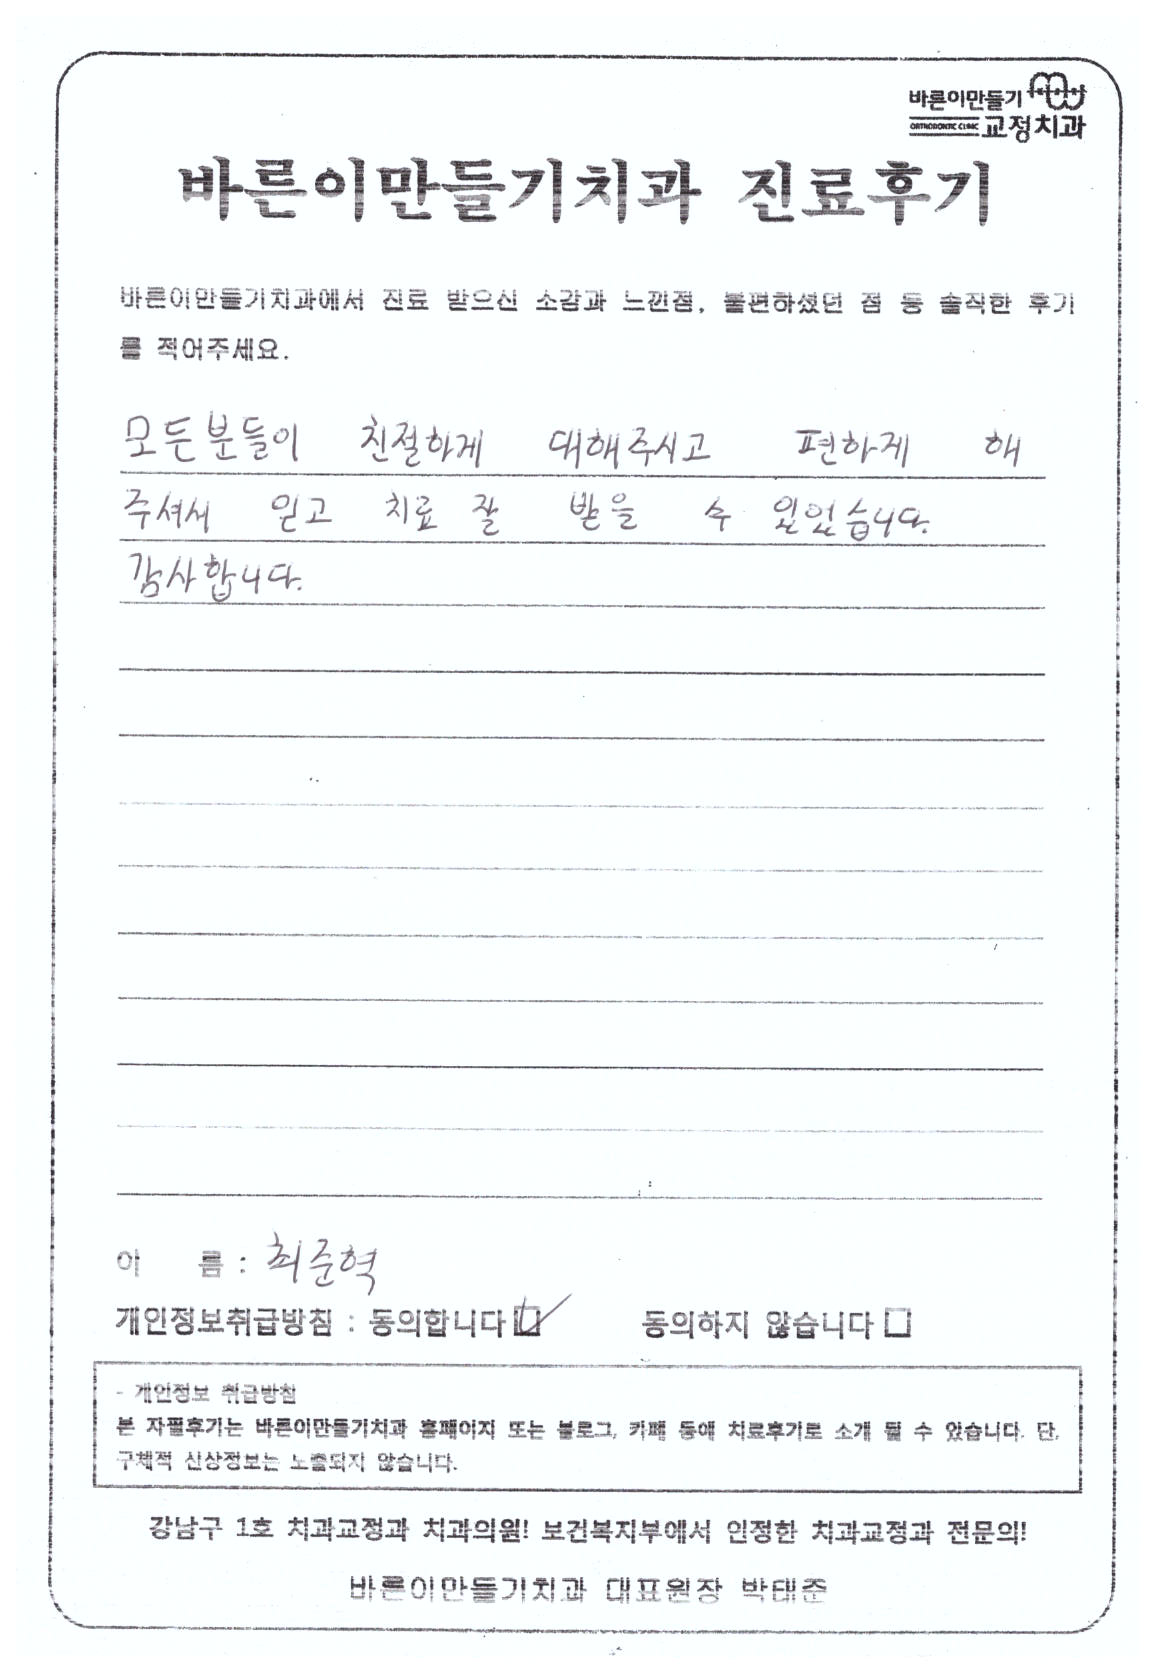 바른이만들기
ORTHODONTIC CLINIC 교정치과
바른이만들기치과 진료후기
바른이만들기치과에서 진료 받으신 소감과 느낀점, 불편하셨던 점 등 솔직한 후기
를 적어주세요.
모든분들이 친절하게 대해주시고 편하게 해
주셔서 믿고 치료 잘 받을 수 있었습니다.
감사합니다.
이 름 : 최준혁
개인정보취급방침 : 동의합니다 동의하지 않습니다
- 개인정보 취급방침
본 자필후기는 바른이만들기치과 홈페이지 또는 블로그, 카페 등에 치료후기로 소개 될 수 있습니다. 단,
구체적 신상정보는 노출되지 않습니다.
강남구 1호 치과교정과 치과의원! 보건복지부에서 인정한 치과교정과 전문의!
바른이만들기치과 대표원장 박태준